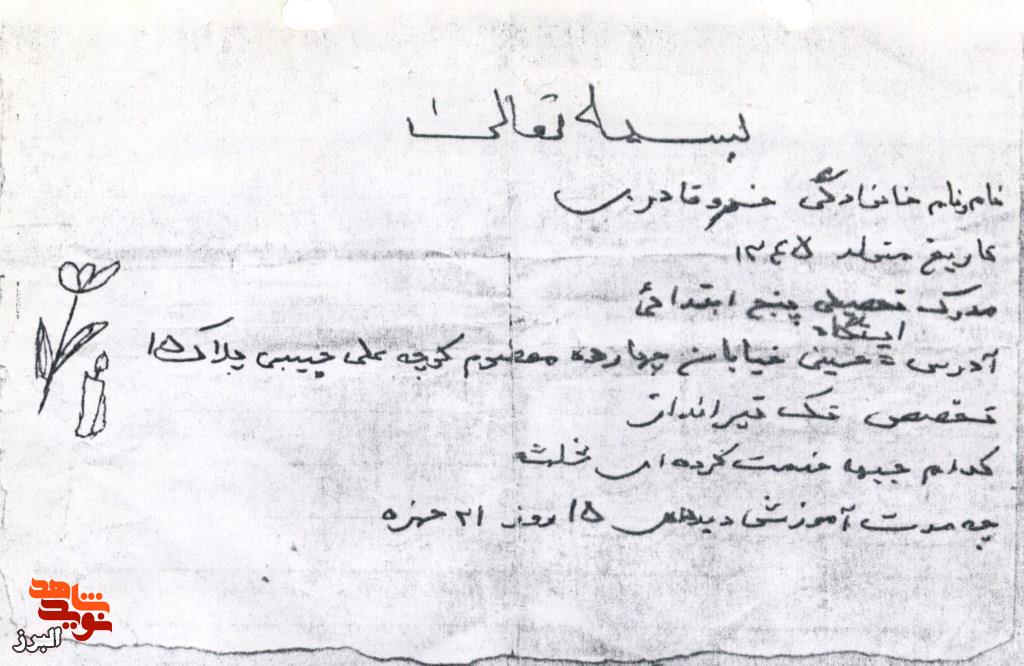 بسمه تعالی
نام و نام خانوادگی خسرو قادری
تاریخ متولد ۱۳۴۵
مدرک تحصیلی پنج ابتدائی
ایستگاه
آدرس حسینی خیابان چهارده معصوم کوچه علی حبیبی پلاک ۱۵
تخصص تک تیرانداز
کدام جبهه خدمت کرده ای
چه مدت آموزش دیدهی ۱۵ روز ۲۱ حمزه
شاهد
نوید
البرز